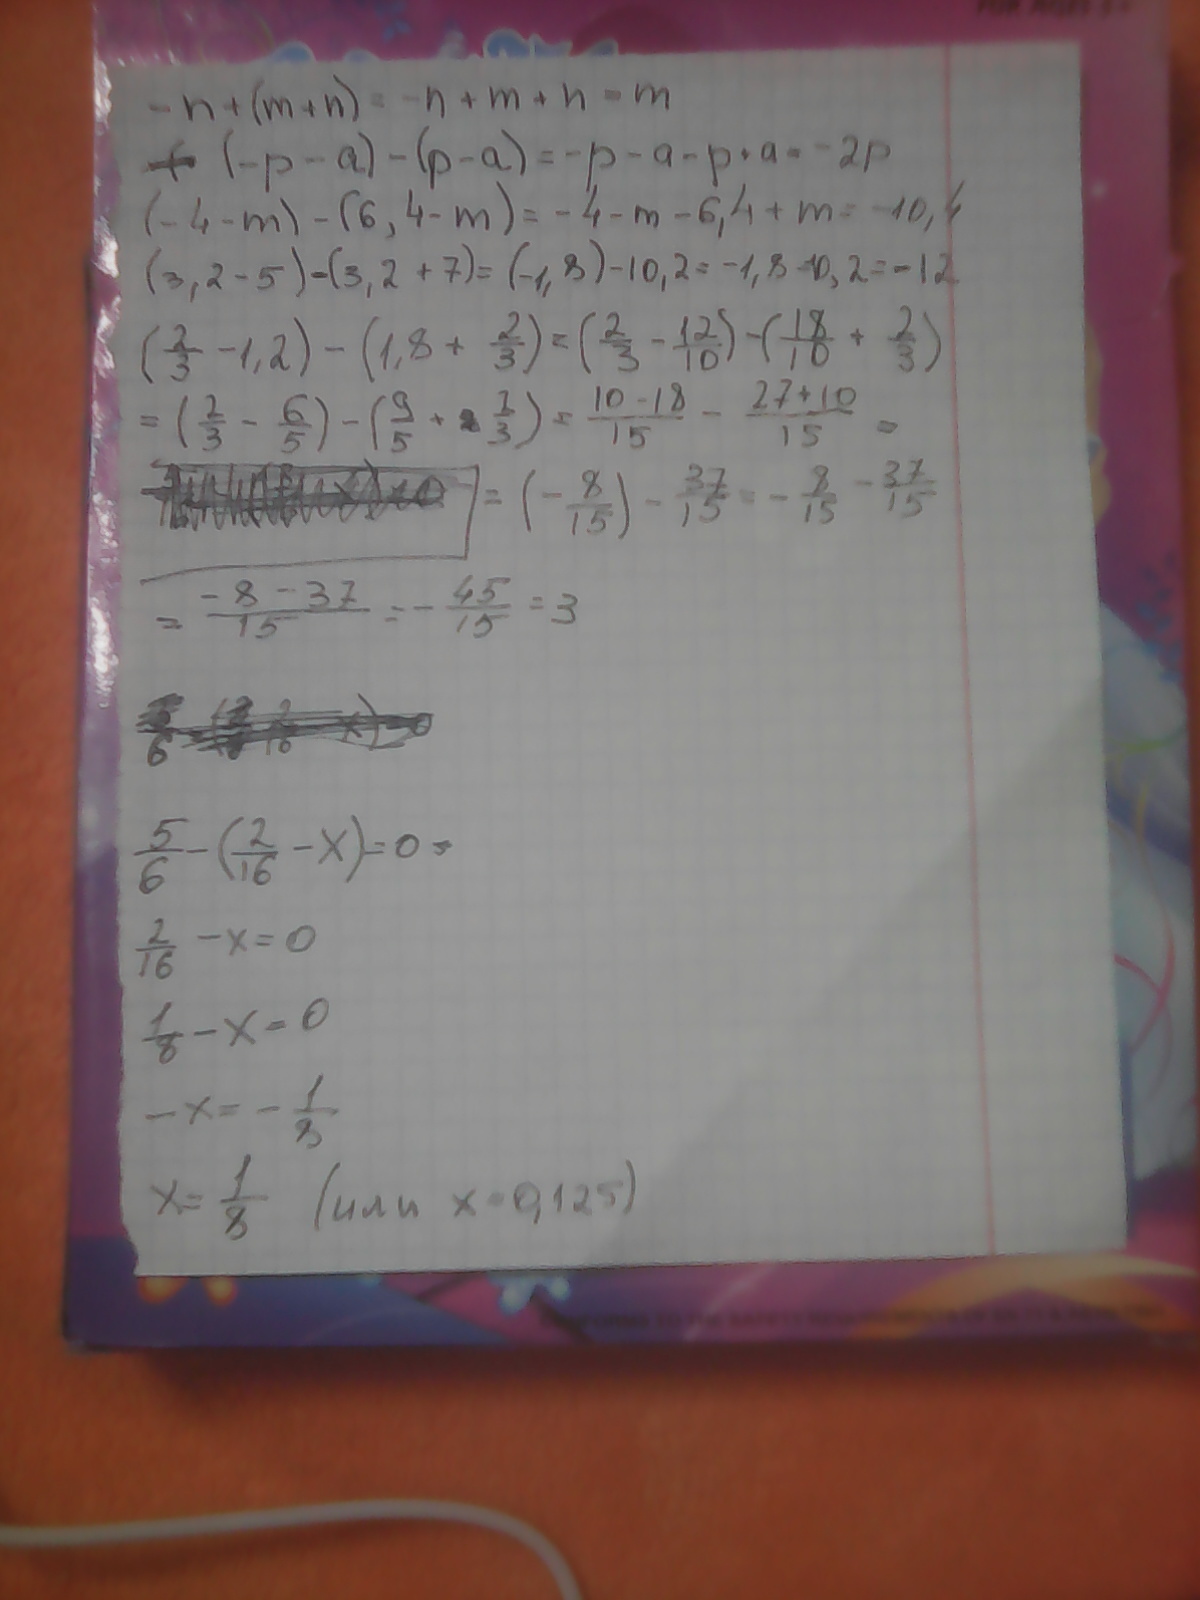 FOR AGES 3+
-n+(m+n)=-n+m+n=m
(-p-a)-(p-a)=-p-a-p+a=-2p
(-4-m)-(6,4-m)=-4-m-6,4+m=-10,4
(3,2-5)-(3,2+7)=(-1,8)-10,2=-1,8-10,2=-12
(2/3-1,2)-(1,8+2/3)=(2/3-12/10)-(18/10+2/3)
=(2/3-6/5)-(9/5+2/3)=10-18/15-27+10/15=
=(-8/15)-37/15=-8/15-37/15
=-8-37/15=-45/15=3
5/6-(2/16-x)=0
2/16-x=0
1/8-x=0
-x=-1/8
x=1/8 (или x=0,125)